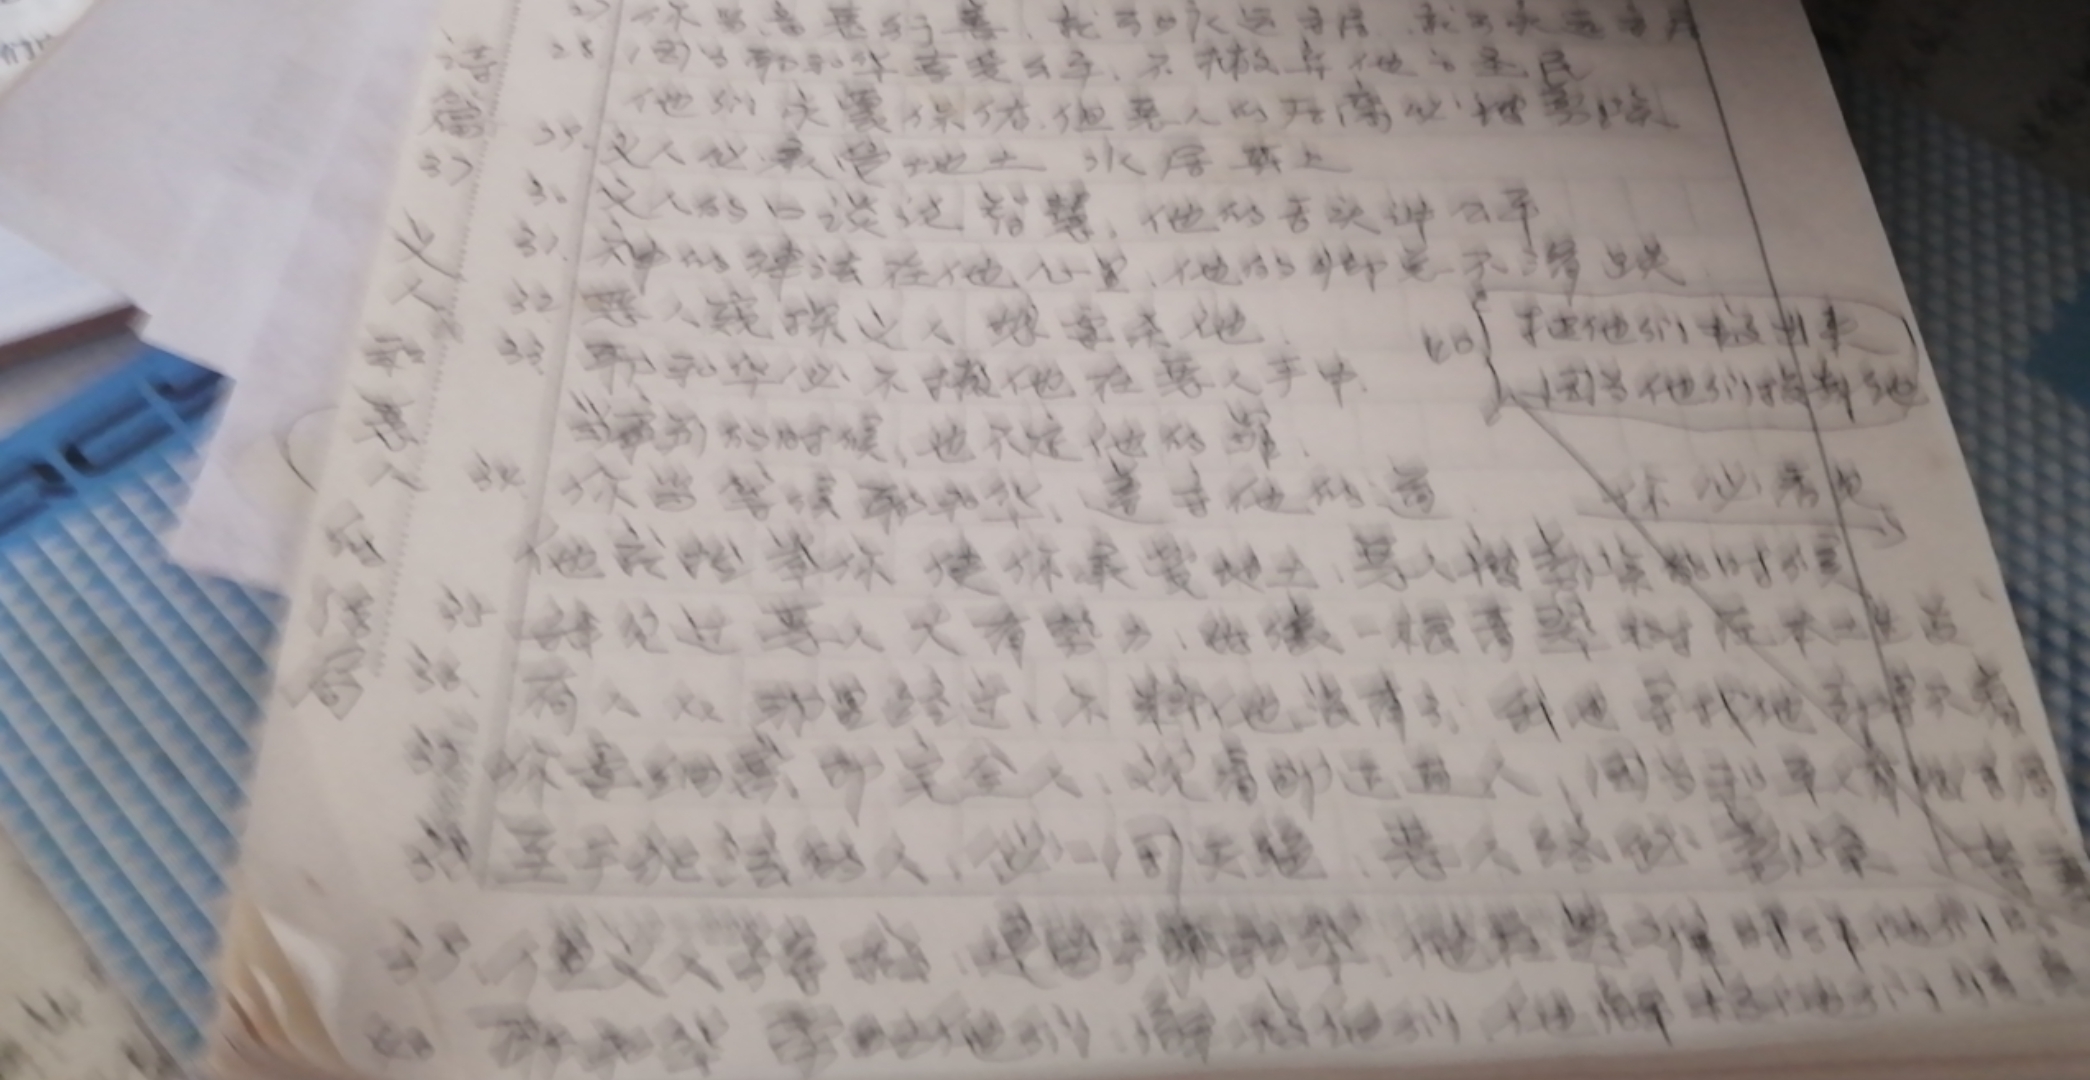 诗篇 37 义人和恶人的结局
27 你当离恶行善，就可永远安居
28 因为耶和华喜爱公平，不撇弃他的圣民
他们永蒙保佑，但恶人的后裔必被剪除
29. 义人必承受地土 永居其上
30 义人的口谈论智慧，他的舌头讲公平
31. 神的律法在他心里，他的脚总不滑跌
32 恶人窥探义人 想要杀他
33 耶和华必不撇他在恶人手中，
当审判的时候，也不定他的罪，
34. 你当等候耶和华，遵守他的道 你必看见
他就抬举你 使你承受地土，恶人被剪除的时候
35 见过恶人大有势力，好像一根青翠树在本土生
36. 有人从那里经过，不料他没有了，我也寻找他 却寻不着
37 你要细察那完全人，观看那正直人，因为和平人有
38 至于犯法的人，必一同灭绝，恶人终必剪除
39. 义人得救，是由于耶和华，他在患难时
40 耶和华帮助他们，解救他们 他解救他们
40 把他们救出来
因为他们投靠他